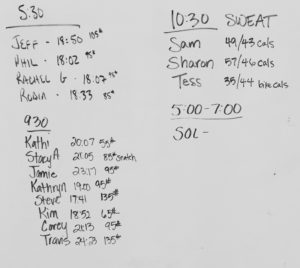 5:30
JEFF - 18:50 105#
PHIL - 18:02 95#
RACHEL G - 18:07 75#
ROBIN - 18:33 85#
930
Kathi 20:07 55#
Stacy A 21:05 85# Snatch
Jamie 23:17 95#
Kathryn 19:00 95#
Steve 17:41 135#
Kim 18:52 65#
Corey 21:13 95#
Travis 24:23 135#
10:30 SWEAT
Sam 49/43 cals
Sharon 57/46 cals
Tess 35/44 bike cals
5:00-7:00
SOL -